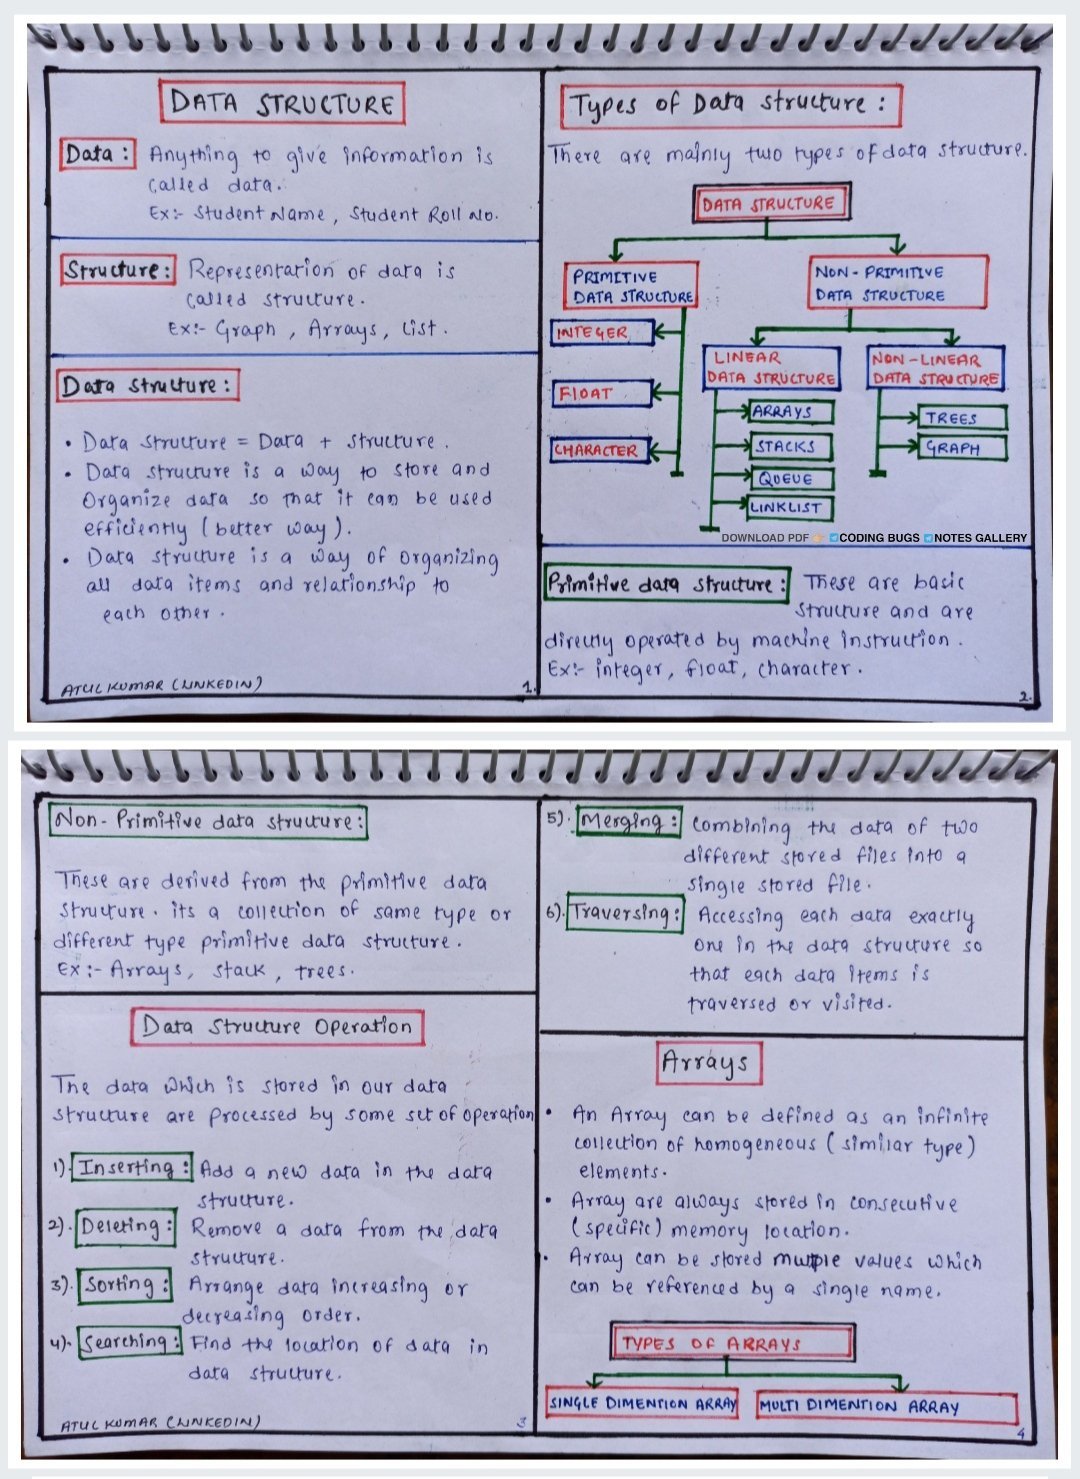 DATA STRUCTURE
Data : Anything to give information is
called data.
Ex:- Student Name , Student Roll No.
Structure : Representation of data is
called structure.
Ex:- Graph , Arrays, List .
Data structure :
• Data structure = Data + structure .
• Data structure is a way to store and
Organize data so that it can be used
efficiently ( better way ).
• Data structure is a way of organizing
all data items and relationship to
each other .
ATUL KUMAR (LINKEDIN)
1.
Types of Data structure :
There are mainly two types of data structure.
DATA STRUCTURE
PRIMITIVE
DATA STRUCTURE
NON - PRIMITIVE
DATA STRUCTURE
INTEGER
FLOAT
CHARACTER
LINEAR
DATA STRUCTURE
NON - LINEAR
DATA STRUCTURE
ARRAYS
STACKS
QUEUE
LINKLIST
TREES
GRAPH
DOWNLOAD PDF 👉 CODING BUGS NOTES GALLERY
Primitive data structure : These are basic
structure and are
directly operated by machine instruction .
Ex:- integer, float, character .
2.
Non - Primitive data structure :
These are derived from the primitive data
structure . its a collection of same type or
different type primitive data structure .
Ex :- Arrays, stack , trees.
Data Structure Operation
The data which is stored in our data
structure are processed by some set of operation
1). Inserting : Add a new data in the data
structure.
2). Deleting : Remove a data from the data
structure.
3). Sorting : Arrange data increasing or
decreasing order.
4). Searching : Find the location of data in
data structure.
ATUL KUMAR (LINKEDIN)
3
5). Merging : Combining the data of two
different stored files into a
single stored file.
6). Traversing : Accessing each data exactly
one in the data structure so
that each data items is
traversed or visited.
Arrays
• An Array can be defined as an infinite
collection of homogeneous ( similar type )
elements.
• Array are always stored in consecutive
( specific ) memory location.
• Array can be stored multiple values which
can be referenced by a single name.
TYPES OF ARRAYS
SINGLE DIMENTION ARRAY
MULTI DIMENTION ARRAY
4